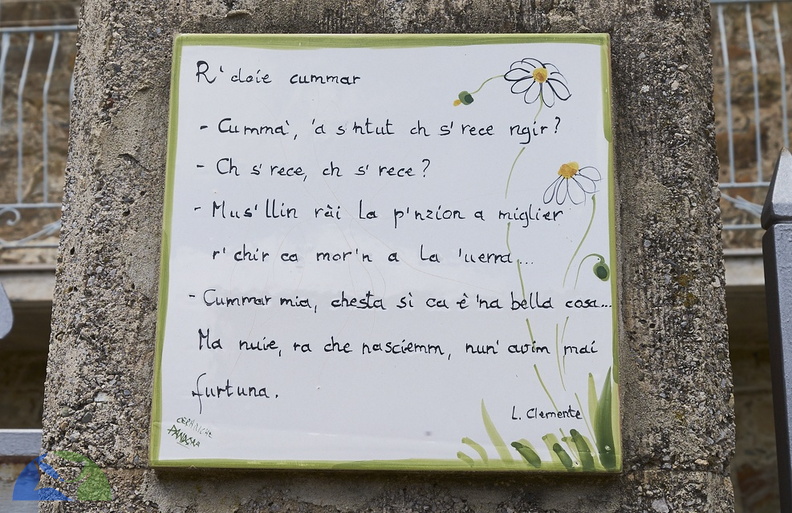 R' doie cummar
- Cumma', 'a s'ntut ch s' rece ngir?
- Ch s' rece, ch s' rece?
- Mus'llin rài la p'nzion a miglier
r' chir ca mor'n a la 'uerra...
- Cummar mia, chesta sì ca è 'na bella cosa...
Ma nuie, ra che nasciemm, nun' avim mai
furtuna.
L. Clemente
CERAMICHE